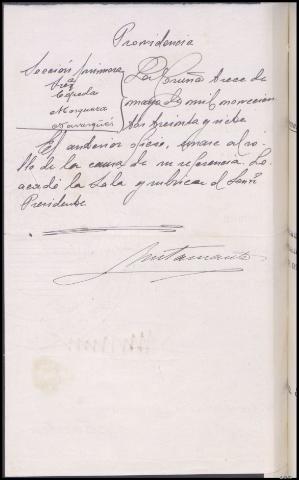 Providencia
Sección primera
Srs
Cepeda
Marquina
La Coruña trece de
mayo de mil novecien
tos treinta y nueve
El anterior oficio, unase al ro-
llo de la causa de su referencia. Lo
acordó la Sala y rubrica el Señor
Presidente